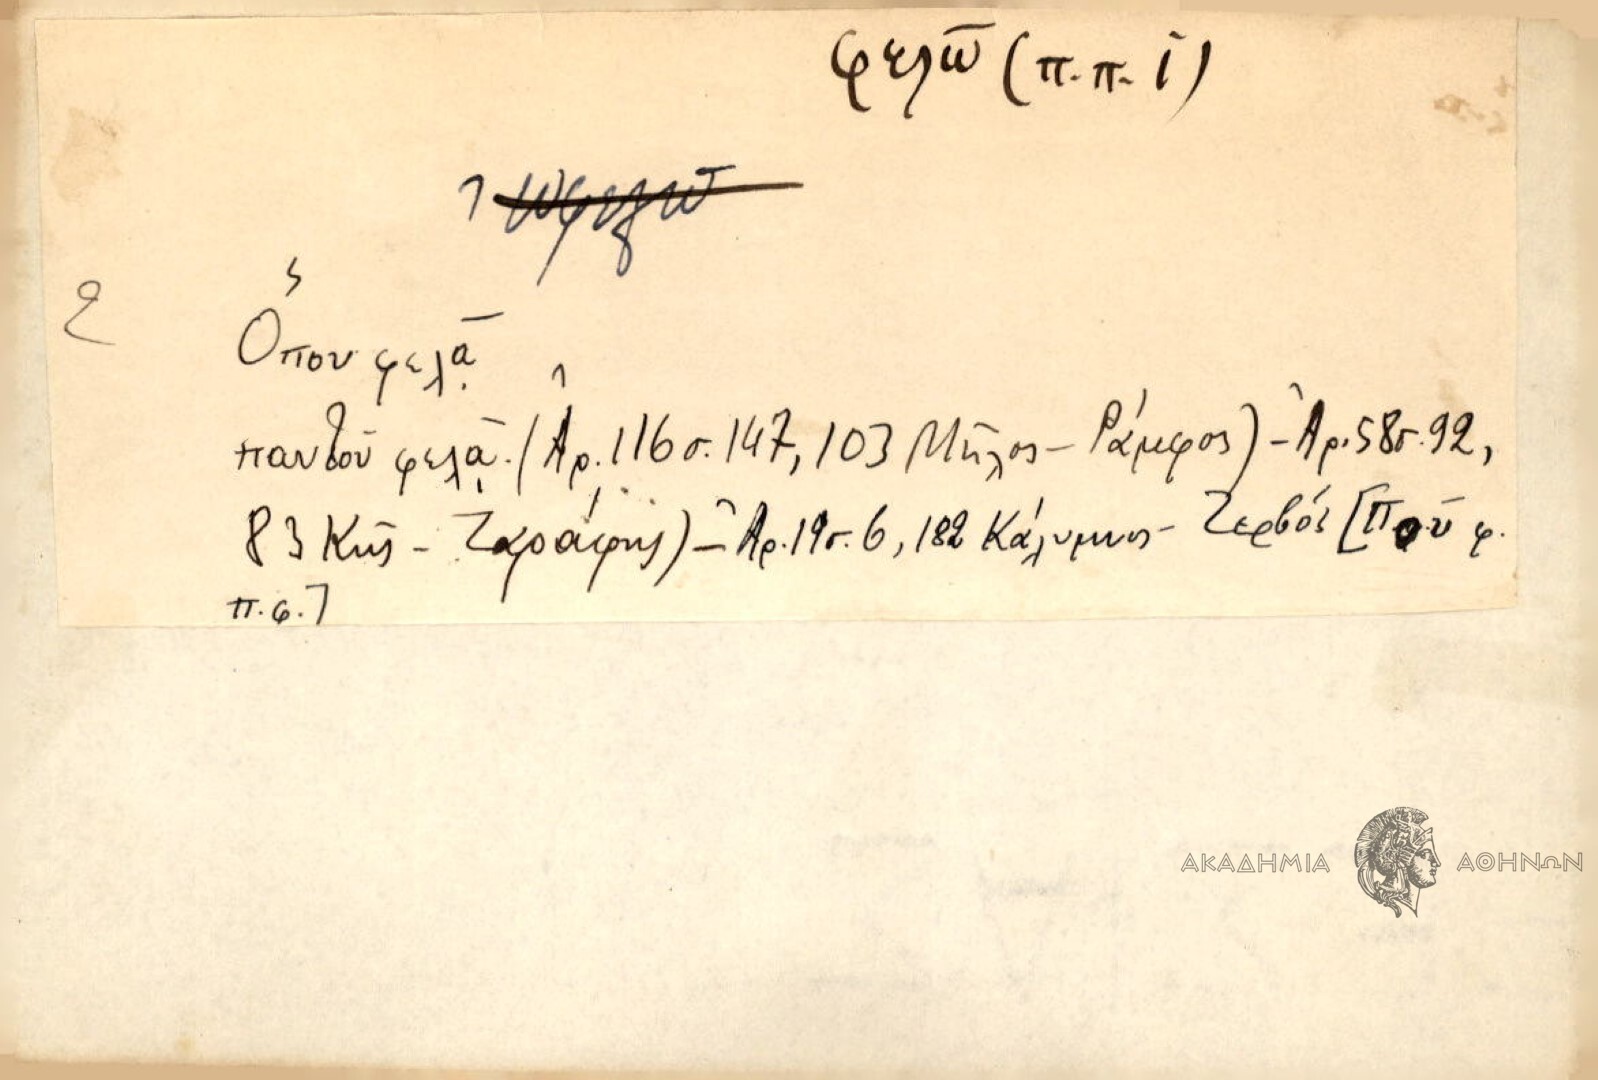 φελῶ (π.π. 1)
1 ὠφελῶ
2
Ὅπου φελᾷ
παντοῦ φελᾷ. (Ἀρ. 116 σ. 147, 103 Μῆλος - Ράμφος) - Ἀρ. 58 σ. 92,
83 Κῶς - Ζαράφτης) - Ἀρ. 19 σ. 6, 182 Κάλυμνος - Ζερβός [Ποῦ φ.
π. φ.]
ΑΚΑΔΗΜΙΑ ΑΘΗΝΩΝ